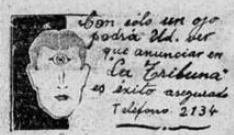 Con sólo un ojo
podrá Ud. ver
que anunciar en
"La Tribuna"
es éxito asegurado
Teléfono. 2134